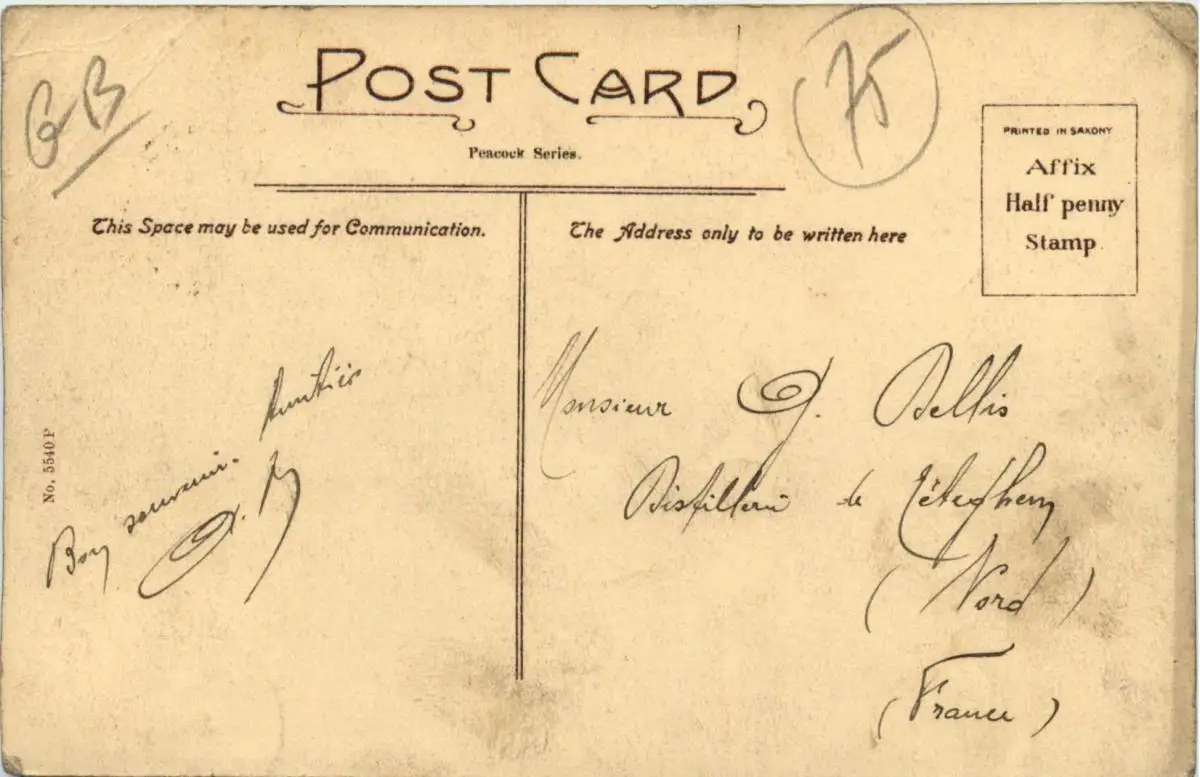 GB
POST CARD
75
Peacock Series.
PRINTED IN SAXONY
Affix
Half penny
Stamp
This Space may be used for Communication.
The Address only to be written here
No. 5540 P
Bon souvenir.
Monsieur G. Bellis
Distillerie de Téteghem
(Nord)
(France)